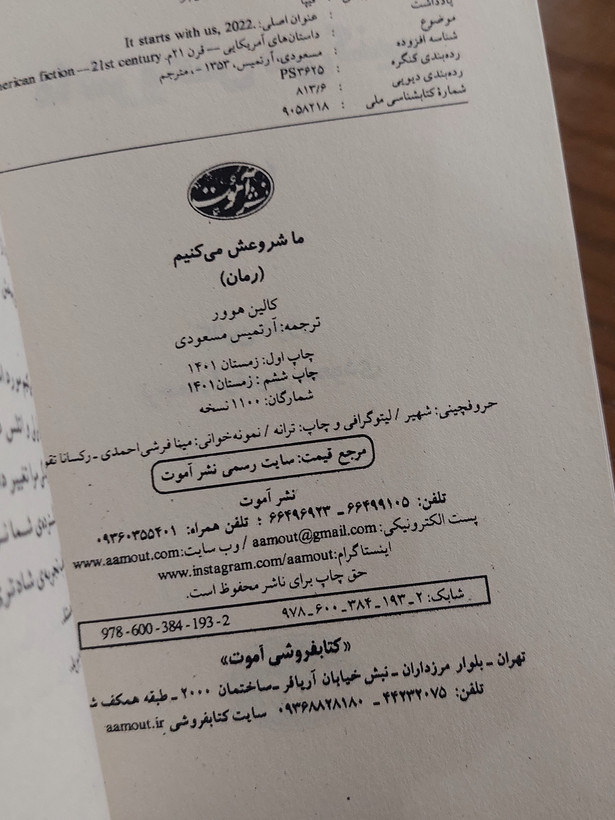 یادداشت : فیپا
موضوع : عنوان اصلی: .It starts with us, 2022
شناسه افزوده : داستان‌های آمریکایی — قرن ۲۱م. erican fiction — 21st century
رده‌بندی کنگره : مسعودی، آرتمیس، ۱۳۵۳ - ، مترجم
رده‌بندی دیویی : PS۳۶۲۵
شمارۀ کتابشناسی ملی : ۸۱۳/۶
۹۰۵۸۲۱۸
نشر آموت
ما شروعش می‌کنیم
(رمان)
کالین هوور
ترجمه: آرتمیس مسعودی
چاپ اول: زمستان ۱۴۰۱
چاپ ششم : زمستان۱۴۰۱
شمارگان: ۱۱۰۰ نسخه
حروفچینی: شهیر / لیتوگرافی و چاپ: ترانه / نمونه‌خوانی: مینا فرشی‌احمدی - رکسانا تقو
مرجع قیمت: سایت رسمی نشر آموت
نشر آموت
تلفن: ۶۶۴۹۹۱۰۵ - ۶۶۴۹۶۹۲۳ ؛ تلفن همراه: ۰۹۳۶۰۳۵۵۴۰۱
پست الکترونیکی: aamout@gmail.com / وب سایت: www.aamout.com
اینستاگرام: www.instagram.com/aamout
حق چاپ برای ناشر محفوظ است.
شابک: ۲ - ۱۹۳ - ۳۸۴ - ۶۰۰ - ۹۷۸ 978-600-384-193-2
«کتابفروشی آموت»
تهران - بلوار مرزداران - نبش خیابان آریافر - ساختمان ۲۰۰۰ - طبقه همکف
تلفن: ۴۴۲۳۲۰۷۵ - ۰۹۳۶۸۸۲۸۱۸۰ سایت کتابفروشی aamout.ir